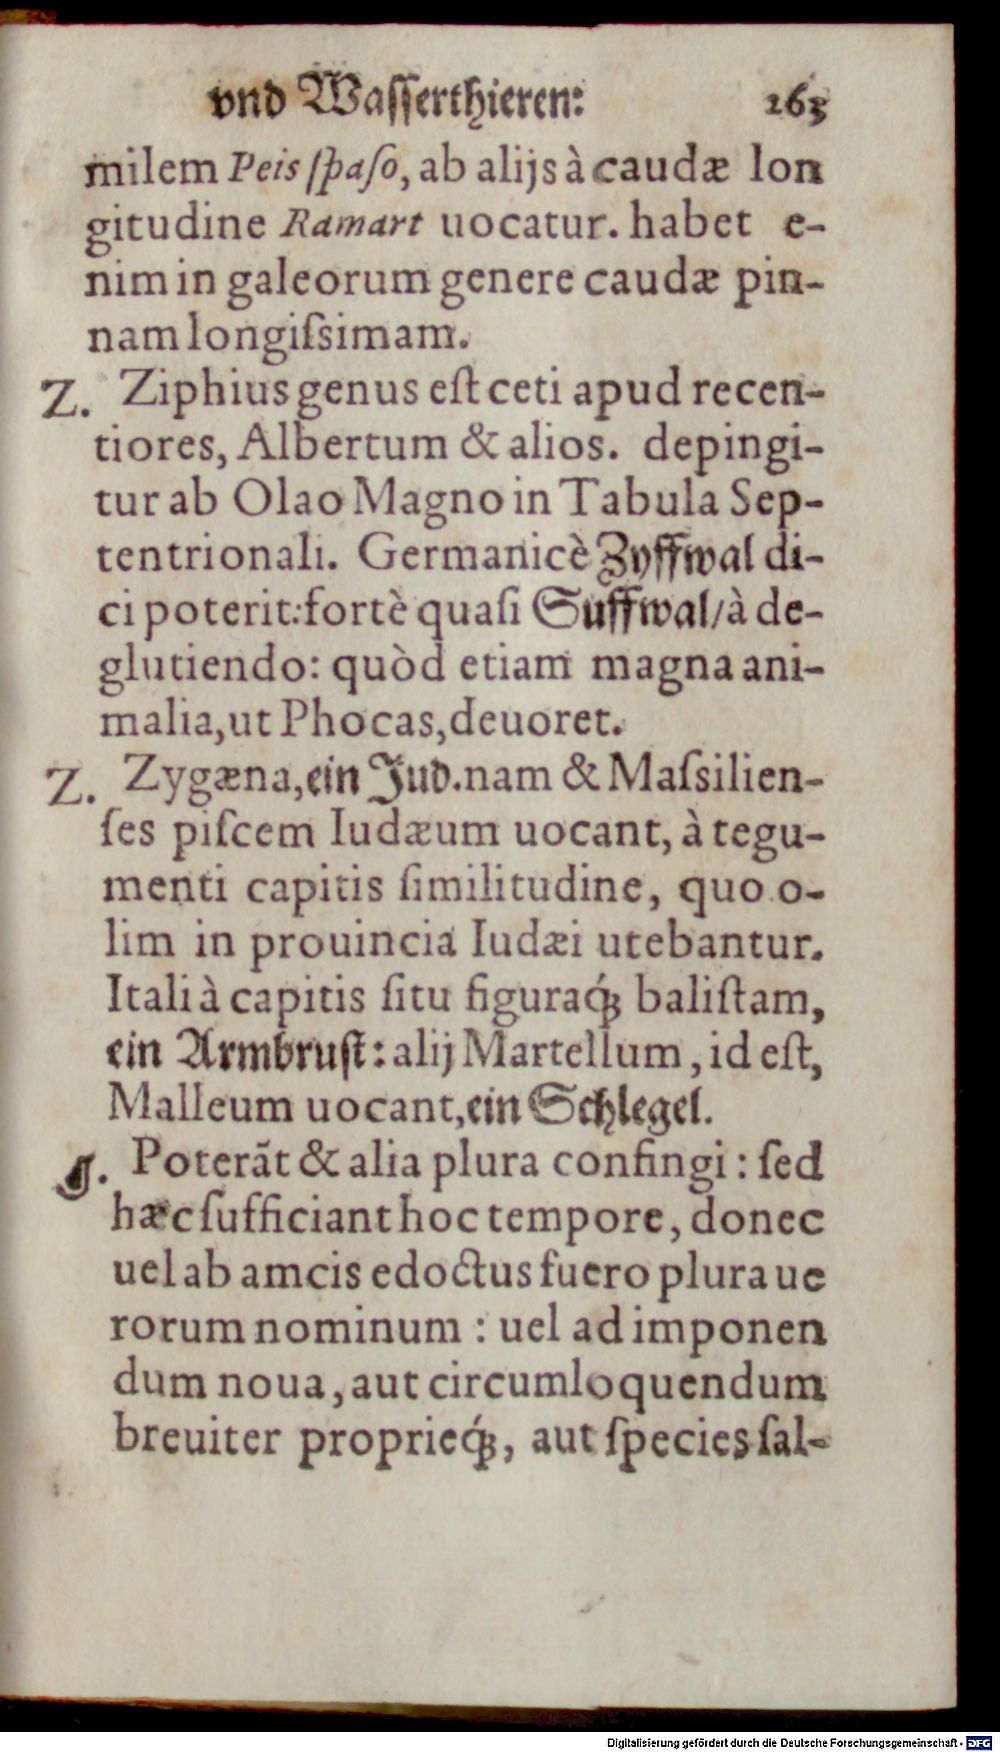 vnd Wasserthieren: 263
milem Peis ſpaſo, ab alijs à caudæ lon
gitudine Ramart uocatur. habet e-
nim in galeorum genere caudæ pin-
nam longiſsimam.
Z. Ziphius genus eſt ceti apud recen-
tiores, Albertum & alios. depingi-
tur ab Olao Magno in Tabula Sep-
tentrionali. Germanicè Zyffwal di-
ci poterit: fortè quaſi Suffwal/ à de-
glutiendo: quòd etiam magna ani-
malia, ut Phocas, deuoret.
Z. Zygæna, ein Jud. nam & Maſsilien-
ſes piſcem Iudæum uocant, à tegu-
menti capitis ſimilitudine, quo o-
lim in prouincia Iudæi utebantur.
Itali à capitis ſitu figuraq́; baliſtam,
ein Armbruſt: alij Martellum, id eſt,
Malleum uocant, ein Schlegel.
g. Poterãt & alia plura confingi: ſed
hæc ſufficiant hoc tempore, donec
uel ab amcis edoctus fuero plura ue
rorum nominum: uel ad imponen
dum noua, aut circumloquendum
breuiter proprieq́;, aut species ſal-
Digitalisierung gefördert durch die Deutsche Forschungsgemeinschaft - DFG